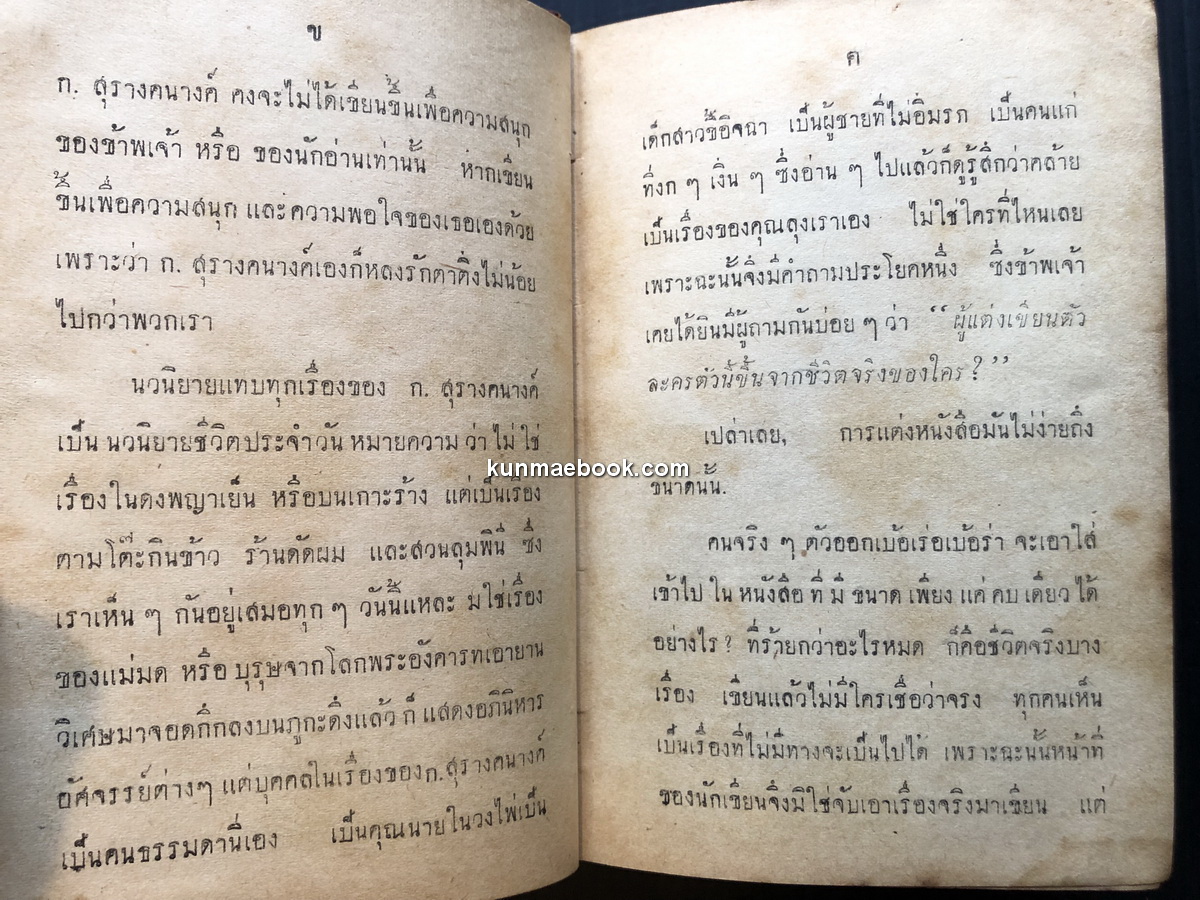 ข
ก. สุรางคนางค์ คงจะไม่ได้เขียนขึ้นเพื่อความสนุก
ของข้าพเจ้า หรือ ของนักอ่านเท่านั้น หากเขียน
ขึ้นเพื่อความสนุก และความพอใจของเธอเองด้วย
เพราะว่า ก. สุรางคนางค์เองก็หลงรักตาติ่งไม่น้อย
ไปกว่าพวกเรา
นวนิยายแทบทุกเรื่องของ ก. สุรางคนางค์
เป็น นวนิยายชีวิตประจำวัน หมายความ ว่า ไม่ ใช่
เรื่องในดงพญาเย็น หรือบนเกาะร้าง แต่เป็นเรื่อง
ตามโต๊ะกินข้าว ร้านดัดผม และสวนลุมพินี ซึ่ง
เราเห็น ๆ กันอยู่เสมอทุก ๆ วันนี้แหละ มิใช่เรื่อง
ของแม่มด หรือ บุรุษจากโลกพระอังคารที่เอายาน
วิเศษมาจอดกึกลงบนภูกะดึงแล้ว ก็ แสดงอภินิหาร
อัศจรรย์ต่างๆ แต่บุคคลในเรื่องของก. สุรางคนางค์
เป็นคนธรรมดานี่เอง เป็นคุณนายในวงไพ่เป็น
ค
เด็กสาวขี้อิจฉา เป็นผู้ชายที่ไม่อิ่มรก เป็นคนแก่
ที่งก ๆ เงิ่น ๆ ซึ่งอ่าน ๆ ไปแล้วก็ดูรู้สึกว่าคล้าย
เป็นเรื่องของคุณลุงเราเอง ไม่ใช่ใครที่ไหนเลย
เพราะฉะนั้นจึงมีคำถามประโยคหนึ่ง ซึ่งข้าพเจ้า
เคยได้ยินมีผู้ถามกันบ่อย ๆ ว่า “ผู้แต่งเขียนตัว
ละครตัวนี้ขึ้นจากชีวิตจริงของใคร?”
เปล่าเลย, การแต่งหนังสือมันไม่ง่ายถึง
ขนาดนั้น.
คนจริง ๆ ตัวออกเบ้อเร่อเบ้อร่า จะเอาใส่
เข้าไป ใน หนังสือ ที่ มี ขนาด เพียง แค่ คบ เดียว ได้
อย่างไร? ที่ร้ายกว่าอะไรหมด ก็คือชีวิตจริงบาง
เรื่อง เขียนแล้วไม่มีใครเชื่อว่าจริง ทุกคนเห็น
เป็นเรื่องที่ไม่มีทางจะเป็นไปได้ เพราะฉะนั้นหน้าที่
ของนักเขียนจึงมิใช่จับเอาเรื่องจริงมาเขียน แต่
kunmaebook.com